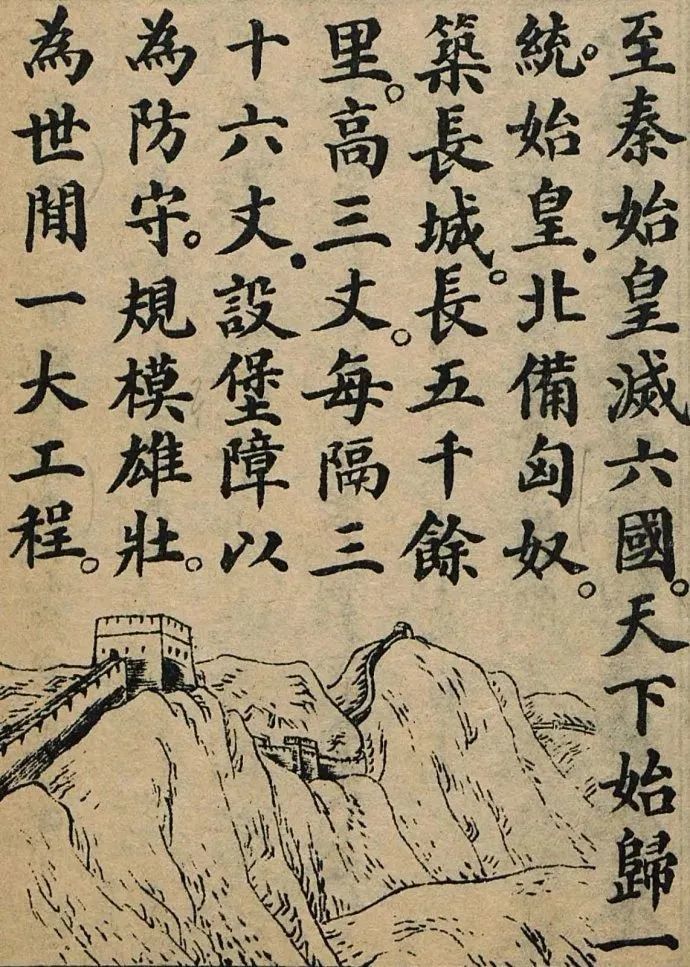 至秦始皇滅六國。天下始歸一
統。始皇.北備匈奴。
築長城。長五千餘
里。高三丈。每隔三
十六丈.設堡障以
為防守。規模雄壯。
為世間一大工程。